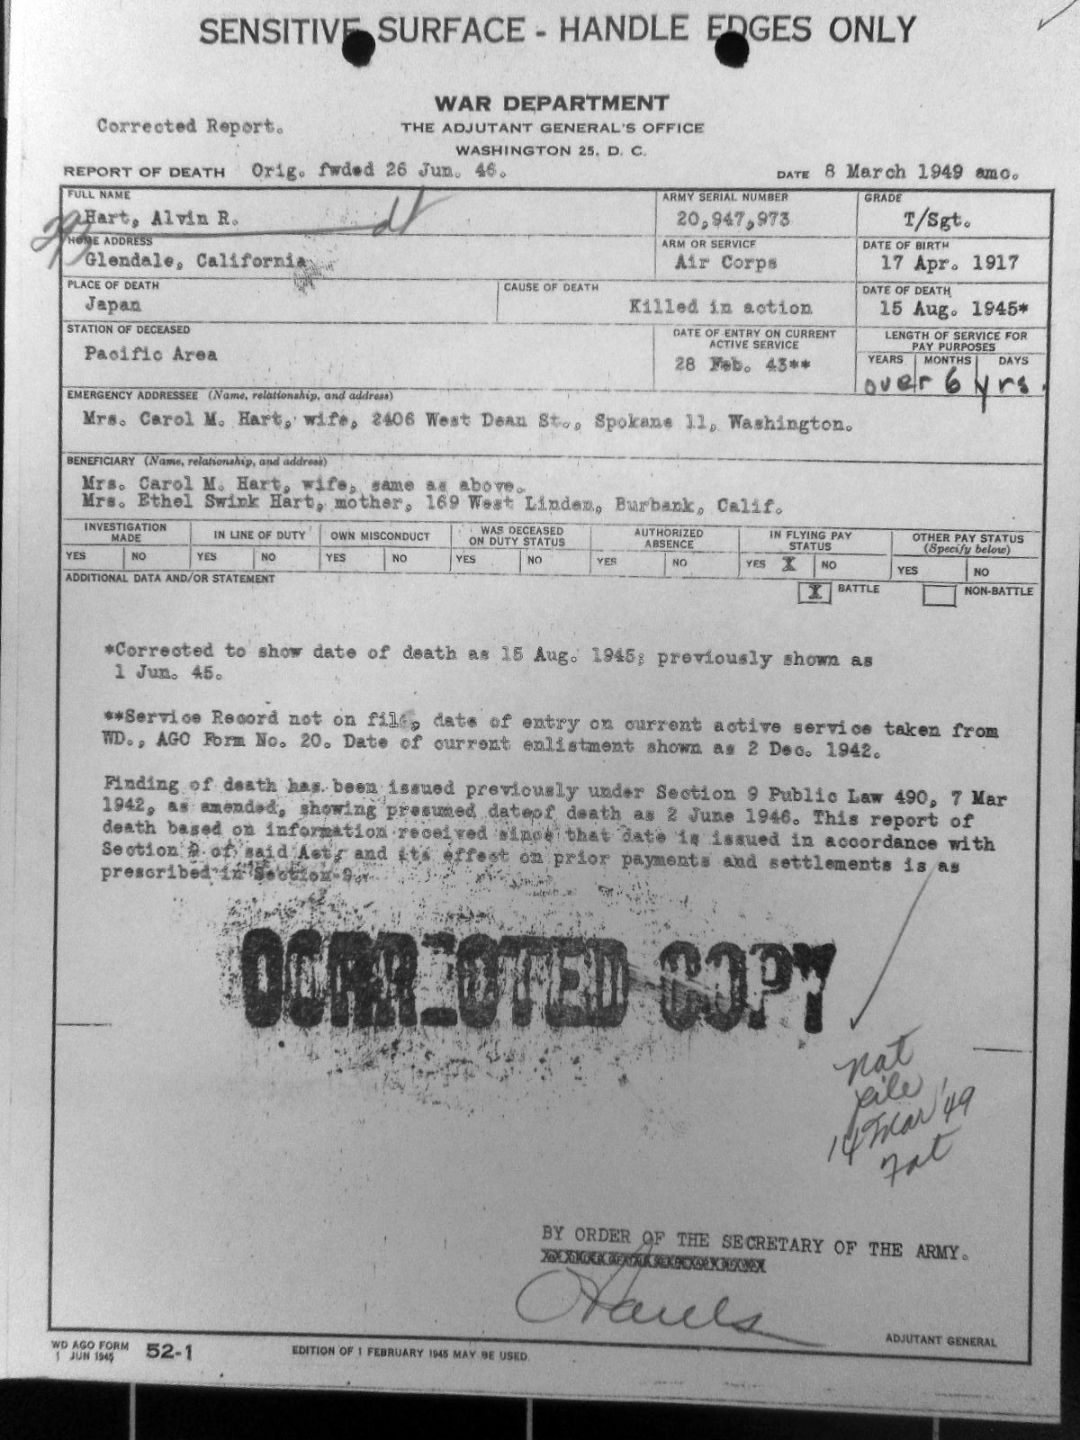 SENSITIVE SURFACE - HANDLE EDGES ONLY
WAR DEPARTMENT
Corrected Report.
THE ADJUTANT GENERAL'S OFFICE
WASHINGTON 25, D. C.
REPORT OF DEATH Orig. fwded 26 Jun. 46.
DATE 8 March 1949 amc.
FULL NAME
Hart, Alvin R.
ARMY SERIAL NUMBER
20,947,973
GRADE
T/Sgt.
HOME ADDRESS
Glendale, California
ARM OR SERVICE
Air Corps
DATE OF BIRTH
17 Apr. 1917
PLACE OF DEATH
Japan
CAUSE OF DEATH
Killed in action
DATE OF DEATH
15 Aug. 1945*
STATION OF DECEASED
Pacific Area
DATE OF ENTRY ON CURRENT
ACTIVE SERVICE
28 Feb. 43**
LENGTH OF SERVICE FOR
PAY PURPOSES
YEARS MONTHS DAYS
over 6 yrs.
EMERGENCY ADDRESSEE (Name, relationship, and address)
Mrs. Carol M. Hart, wife, 2406 West Dean St., Spokane 11, Washington.
BENEFICIARY (Name, relationship, and address)
Mrs. Carol M. Hart, wife, same as above.
Mrs. Ethel Swink Hart, mother, 169 West Linden, Burbank, Calif.
INVESTIGATION
MADE
IN LINE OF DUTY
OWN MISCONDUCT
WAS DECEASED
ON DUTY STATUS
AUTHORIZED
ABSENCE
IN FLYING PAY
STATUS
OTHER PAY STATUS
(Specify below)
YES NO YES NO YES NO YES NO YES NO YES X NO YES NO
ADDITIONAL DATA AND/OR STATEMENT
X BATTLE NON-BATTLE
*Corrected to show date of death as 15 Aug. 1945; previously shown as
1 Jun. 45.
**Service Record not on file, date of entry on current active service taken from
WD., AGO Form No. 20. Date of current enlistment shown as 2 Dec. 1942.
Finding of death has been issued previously under Section 9 Public Law 490, 7 Mar
1942, as amended, showing presumed dateof death as 2 June 1946. This report of
death based on information received since that date is issued in accordance with
Section 9 of said Act, and its effect on prior payments and settlements is as
prescribed in Section 9.
CORRECTED COPY
file
14 Mar '49
BY ORDER OF THE SECRETARY OF THE ARMY.
ADJUTANT GENERAL
WD AGO FORM
1 JUN 1945 52-1
EDITION OF 1 FEBRUARY 1945 MAY BE USED.